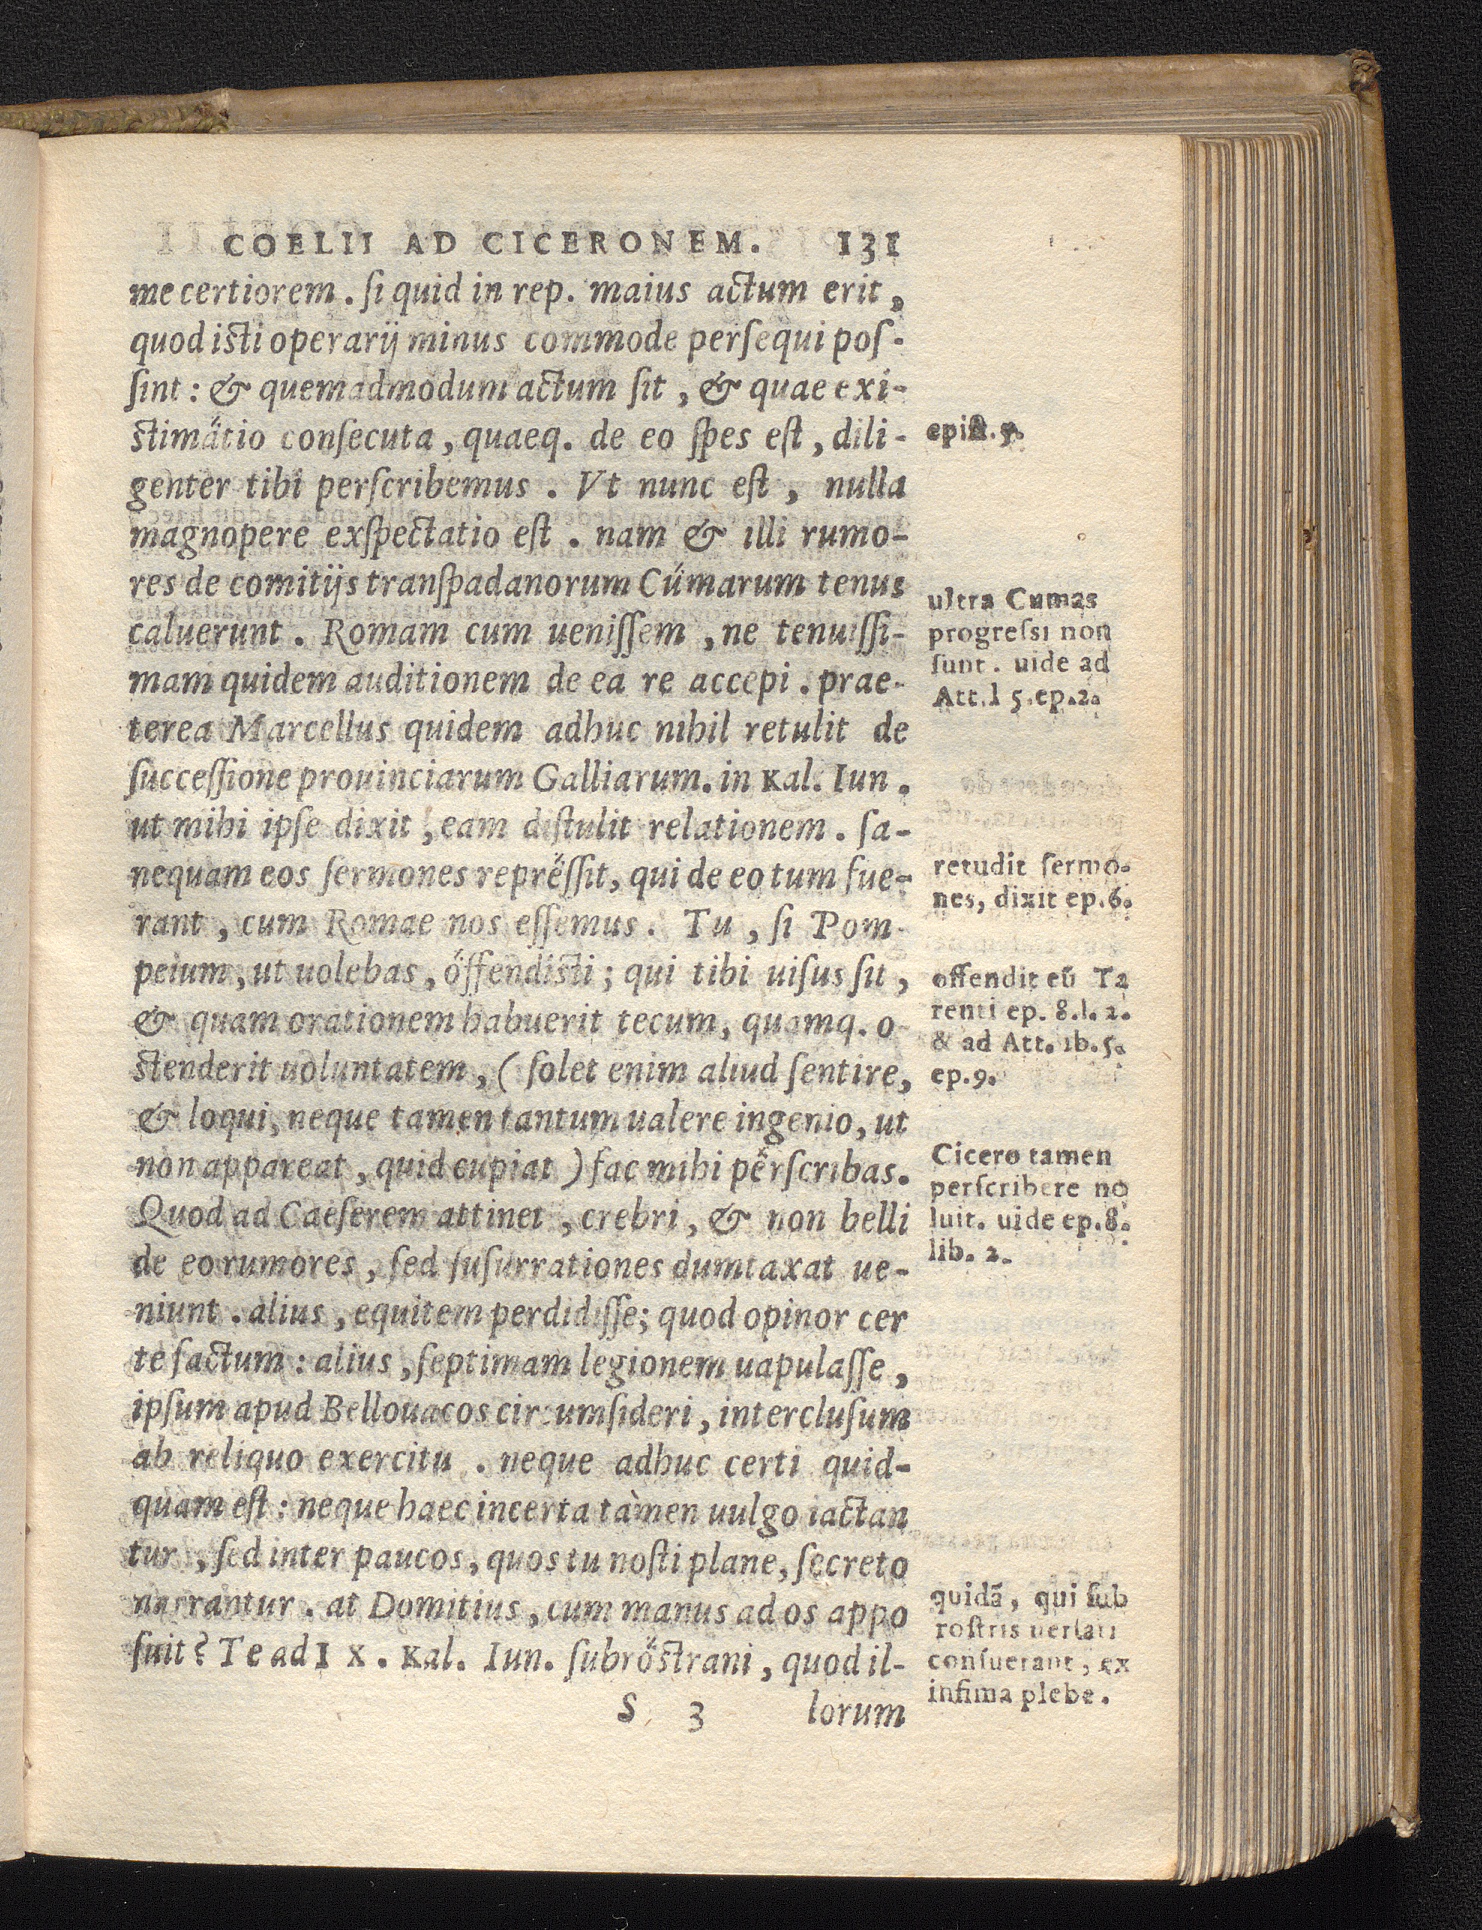 COELII AD CICERONEM. 131
me certiorem. ſi quid in rep. maius actum erit,
quod isti operarij minus commode perſequi poſ-
ſint: & quemadmodum actum ſit, & quae exi-
stimatio conſecuta, quaeq. de eo ſpes eſt, dili-
genter tibi perſcribemus. Vt nunc eſt, nulla
magnopere exſpectatio eſt. nam & illi rumo-
res de comitijs tranſpadanorum Cumarum tenus
caluerunt. Romam cum ueniſſem, ne tenuiſſi-
mam quidem auditionem de ea re accepi. prae-
terea Marcellus quidem adhuc nihil retulit de
ſucceſſione prouinciarum Galliarum. in Kal. Iun.
ut mihi ipſe dixit, eam diſtulit relationem. ſa-
nequam eos ſermones repreſſit, qui de eo tum fue-
rant, cum Romae nos eſſemus. Tu, ſi Pom-
peium, ut uolebas, offendisti; qui tibi uiſus ſit,
& quam orationem habuerit tecum, quamq. o-
stenderit uoluntatem, (ſolet enim aliud ſentire,
& loqui, neque tamen tantum ualere ingenio, ut
non appareat, quid cupiat) fac mihi perſcribas.
Quod ad Caeſerem attinet, crebri, & non belli
de eo rumores, ſed ſuſurrationes dumtaxat ue-
niunt. alius, equitem perdidiſſe; quod opinor cer
te factum: alius, ſeptimam legionem uapulaſſe,
ipſum apud Bellouacos circumſideri, intercluſum
ab reliquo exercitu. neque adhuc certi quid-
quam eſt: neque haec incerta tàmen uulgo iactan
tur, ſed inter paucos, quos tu noſti plane, ſecreto
narrantur. at Domitius, cum manus ad os appo
ſuit? Te ad IX. Kal. Iun. ſubrostrani, quod il-
S 3 lorum
epiſt.
ultra Cumas
progreſsi non
ſunt. uide ad
Att. l 5. ep. 2.
retudit ſermo-
nes, dixit ep. 6.
offendit eū Ta
renti ep. 8. l. 2.
& ad Att. lib. 5.
ep. 9.
Cicero tamen
perſcribere no
luit. uide ep. 8.
lib. 2.
quidã, qui ſub
roſtris uerſari
conſuerant, ex
infima plebe.